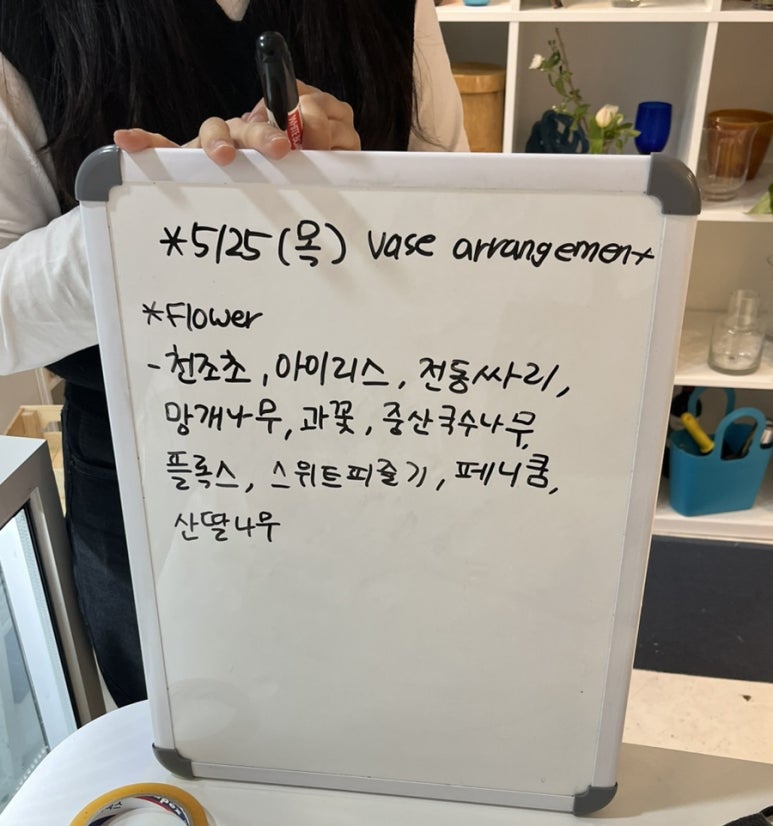 *5/25 (목) vase arrangement
*Flower
-천조초, 아이리스, 전동싸리,
망개나무, 과꽃, 중산국수나무,
플록스, 스위트피줄기, 페니쿰,
산딸나무